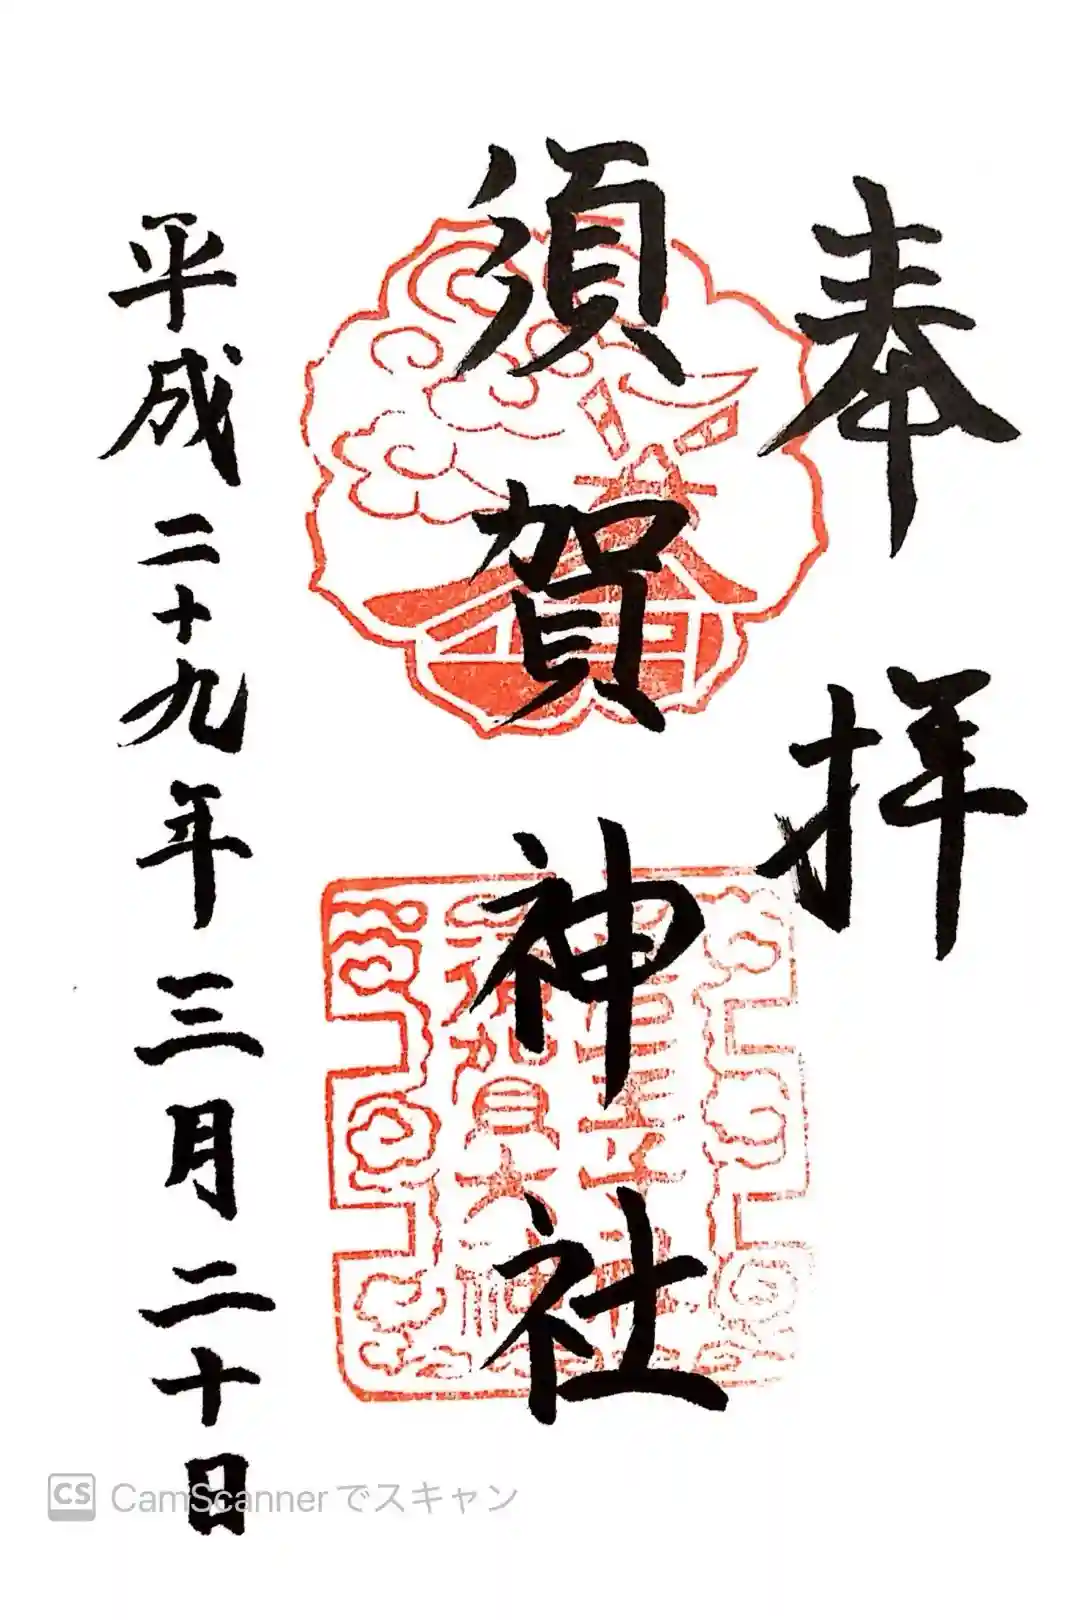 奉拝
須賀神社
平成二十九年三月二十日
CS CamScannerでスキャン